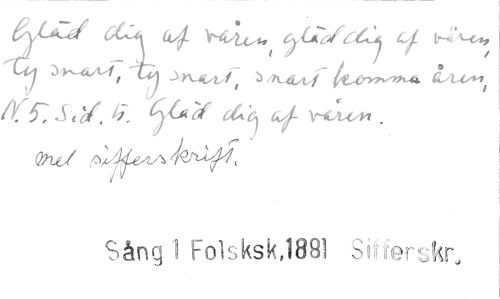 Gläd dig af våren, gläd dig af våren,
ty snart, ty snart, snart komma åren,
N. 5. Sid. 5. Gläd dig af våren.
mel sifferskrift.
Sång 1 Folsksk,1881 Sifferskr.